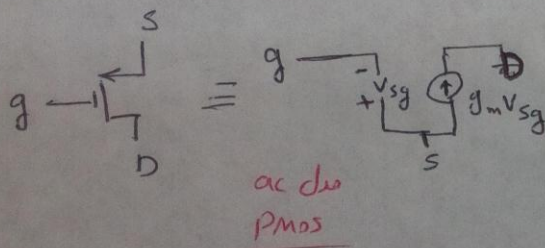 S
g
D
≡
g
- Vsg +
gmVsg
D
S
ac
PMOS